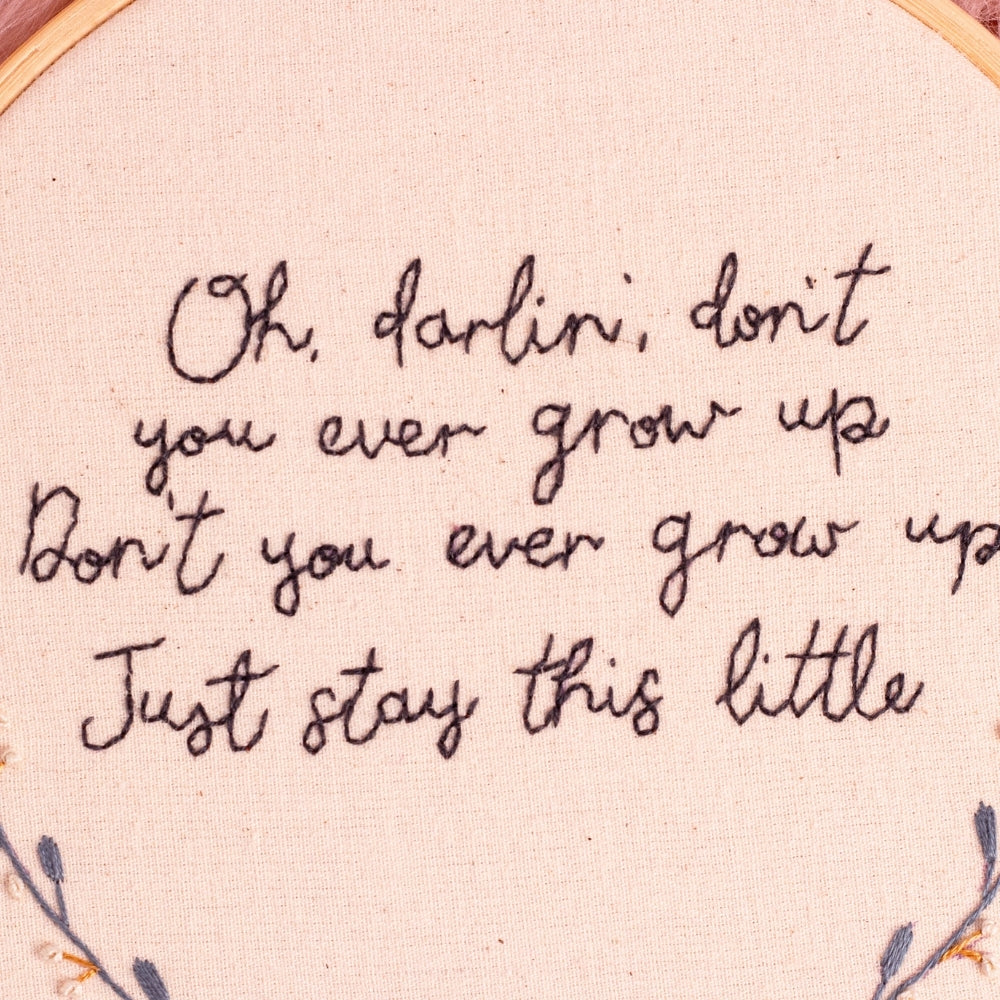 Oh, darlin', don't
you ever grow up
Don't you ever grow up
Just stay this little